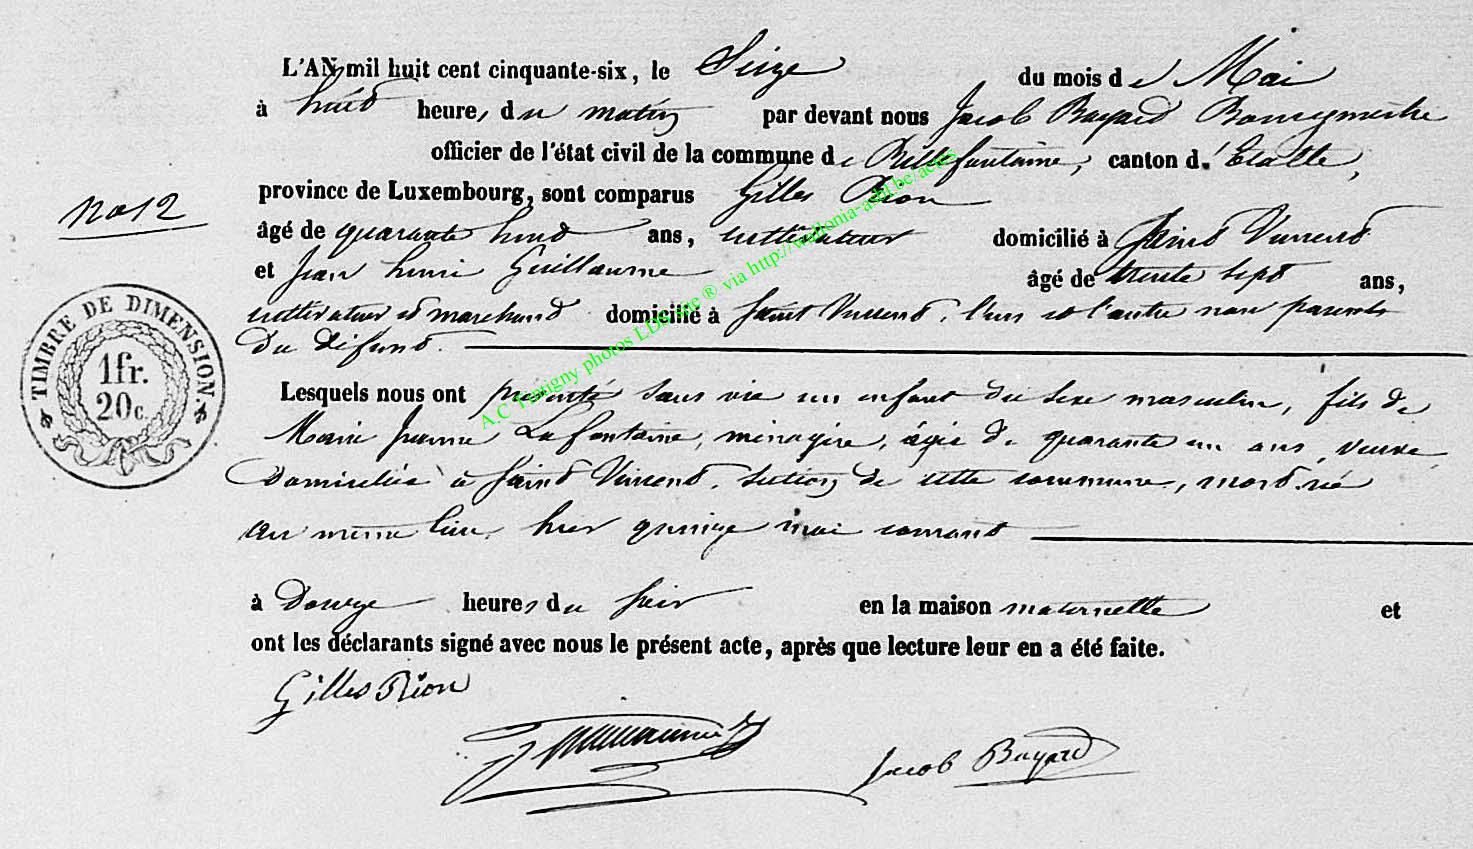 L'AN mil huit cent cinquante-six, le Seize du mois de Mai
à huit heures du matin par devant nous Jacob Bayard Bourgmestre
officier de l'état civil de la commune de Bellefontaine, canton d'Etalle,
province de Luxembourg, sont comparus Gilles Rion
no 12
âgé de quarante huit ans, cultivateur domicilié à Saint Vincent
et Jean Henri Guillaume âgé de trente sept ans,
cultivateur et marchand domicilié à Saint Vincent, l'un et l'autre non parents
du défunt.
TIMBRE DE DIMENSION
1fr.
20c.
Lesquels nous ont présenté sans vie un enfant du sexe masculin, fils de
Marie Jeanne Lafontaine, ménagère, âgée de quarante un ans, veuve,
domiciliée à Saint Vincent, section de cette commune, mort-né
au même lieu, hier quinze mai courant
à douze heures du soir en la maison maternelle et
ont les déclarants signé avec nous le présent acte, après que lecture leur en a été faite.
Gilles Rion
Jacob Bayard
A.C Tintigny photos LDS sue ® via http://wallonia-asbl.be/actes